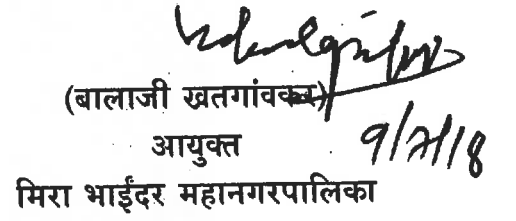 (बालाजी खतगांवकर)
आयुक्त
9/7/18
मिरा भाईंदर महानगरपालिका